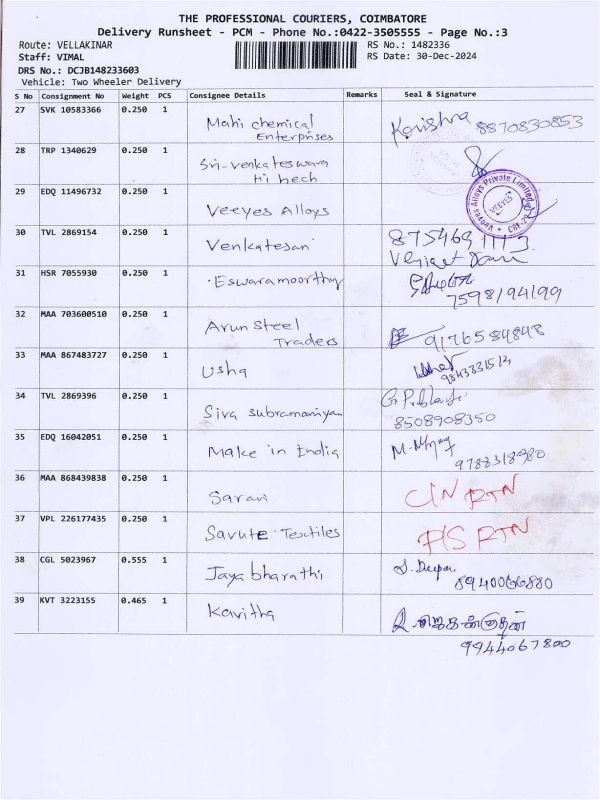 THE PROFESSIONAL COURIERS, COIMBATORE
Delivery Runsheet - PCM - Phone No.:0422-3505555 - Page No.:3
Route: VELLAKINAR RS No.: 1482336
Staff: VIMAL RS Date: 30-Dec-2024
DRS No.: DCJB148233603
Vehicle: Two Wheeler Delivery
S No Consignment No Weight PCS Consignee Details Remarks Seal & Signature
27 SVK 10583366 0.250 1 Mahi chemical Enterprises Karishra 8870830853
28 TRP 1340629 0.250 1 Sri-venkateswara Hi hech
29 EDQ 11496732 0.250 1 Veeyes Alloys Veeyes Alloys Private Limited VEEYES
30 TVL 2869154 0.250 1 Venkatesan 8754691113
31 HSR 7055930 0.250 1 Eswaramoorthy 7598194199
32 MAA 703600510 0.250 1 Arun Steel Traders 9176584848
33 MAA 867483727 0.250 1 Usha
34 TVL 2869396 0.250 1 Siva subramaniyan 8508908350
35 EDQ 16042051 0.250 1 Make in India 9788318980
36 MAA 868439838 0.250 1 Saravi C/N RTN
37 VPL 226177435 0.250 1 Savute Textiles P/S RTN
38 CGL 5023967 0.555 1 Jaya bharathi S. Deepa 8940066880
39 KVT 3223155 0.465 1 Kavitha 9944067800